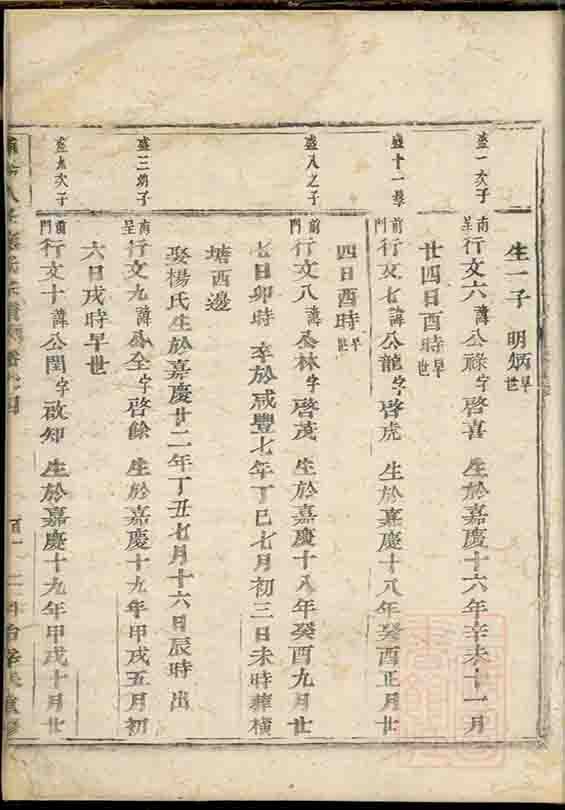 生一子 明炳早世
盛一次子
南呈行文六諱公祿字啓喜 生於嘉慶十六年辛未十一月
廿四日酉時早世
盛十一
前門行文七諱公龍字啓虎 生於嘉慶十八年癸酉正月廿
四日酉時早世
盛八之子
前門行文八諱公林字啓茂 生於嘉慶十八年癸酉九月廿
七日卯時 卒於咸豐七年丁巳七月初三日未時葬橫
塘西邊
娶楊氏生於嘉慶廿二年丁丑七月十六日辰時 出
盛三幼子
南呈行文九諱公全字啓餘 生於嘉慶十九年甲戌五月初
六日戌時早世
盛九次子
前門行文十諱公閏字啟知 生於嘉慶十九年甲戌十月廿